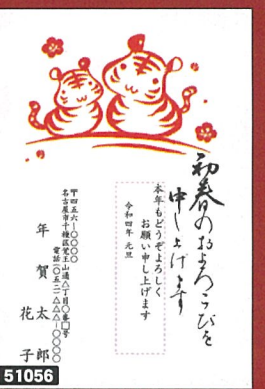 初春のおよろこびを
申し上げます
本年もどうぞよろしく
お願い申し上げます
令和四年 元旦
〒四五六-〇〇〇〇
名古屋市千種区覚王山通△丁目〇番□号
電話(〇五二)△△△-〇〇〇〇
年賀太郎
花子
51056